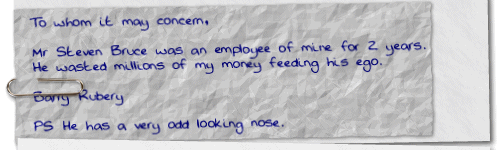 To whom it may concern,
Mr Steven Bruce was an employee of mine for 2 years.
He wasted millions of my money feeding his ego.
Barry Rubery
PS He has a very odd looking nose.